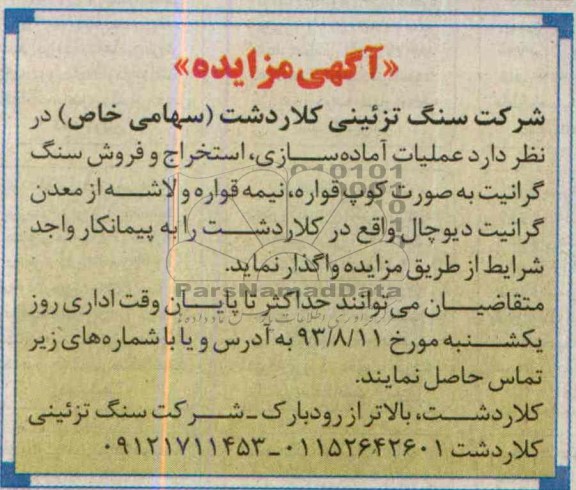 «آگهی مزایده»
شرکت سنگ تزئینی کلاردشت (سهامی خاص) در
نظر دارد عملیات آماده‌سازی، استخراج و فروش سنگ
گرانیت به صورت کوپ قواره، نیمه قواره و لاشه از معدن
گرانیت دیوچال واقع در کلاردشت را به پیمانکار واجد
شرایط از طریق مزایده واگذار نماید.
ParsNamadData
متقاضیان می‌توانند حداکثر تا پایان وقت اداری روز
یکشنبه مورخ ۹۳/۸/۱۱ به آدرس و یا با شماره‌های زیر
تماس حاصل نمایند.
کلاردشت، بالاتر از رودبارک ـ شرکت سنگ تزئینی
کلاردشت ۰۱۱۵۲۶۴۲۶۰۱ ـ ۰۹۱۲۱۷۱۱۴۵۳